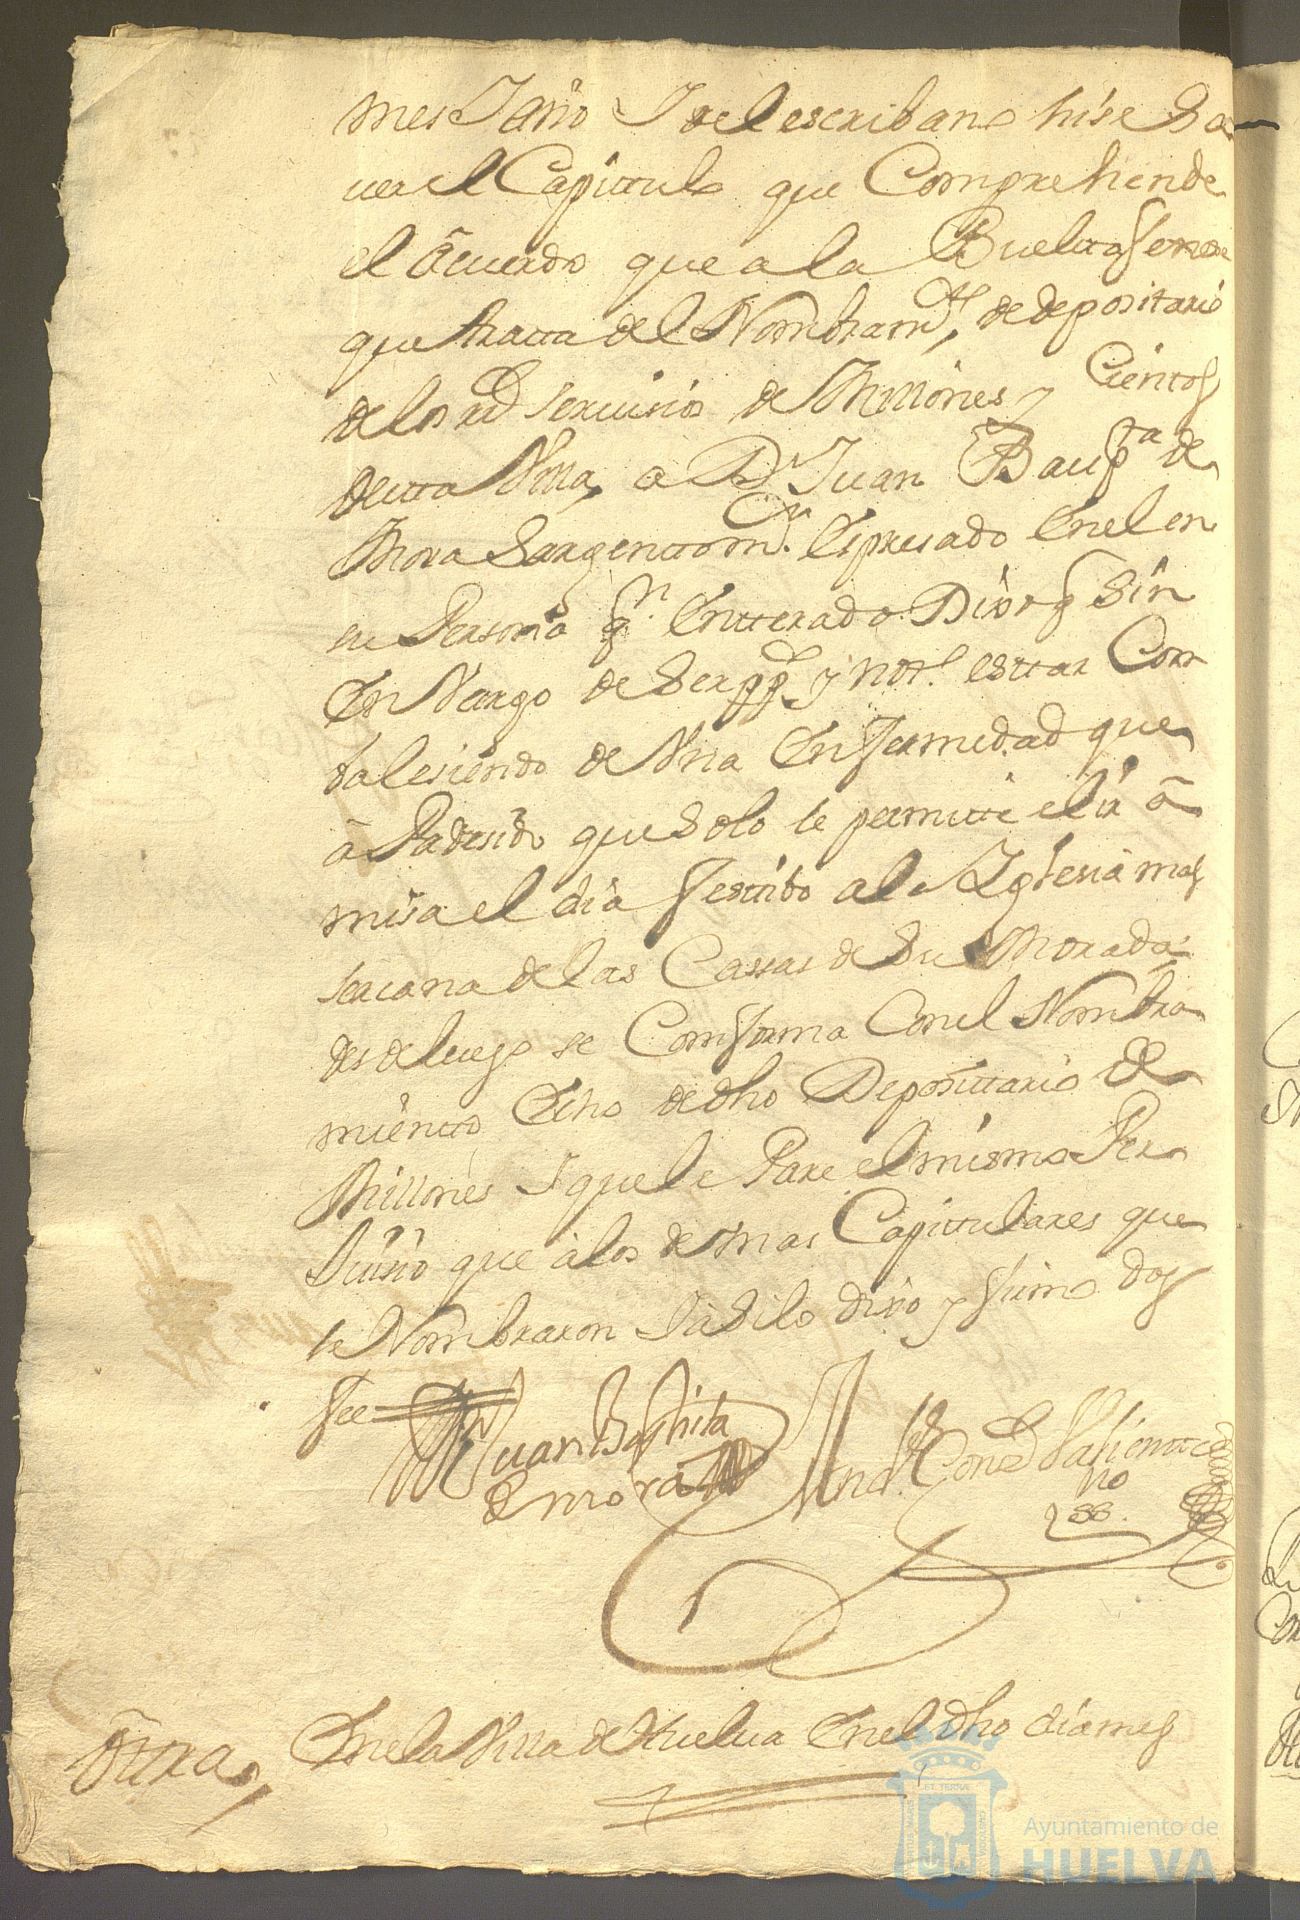 mes Y año Yo el escribano hise Sa
uer el Capittulo que Comprehende
el Acuerdo que a la Buelta
que tratta del Nombram.to de depositario
de los rs seruisios de Millones y Cientos
de esta Villa, a Dn Juan Baup.ta de
Mora Sargento m.or Espresado en el en
su Persona q.n Entterado Dixo q Sin
En Vargo de Ser pp.co y nott.o esttar Com
balesiendo de Vna Enfermedad que
à Padesido que Solo le permitte el ir à
misa el dia festibo a la Yglesia mas
sercana de las Cassas de Su Morada
desde luego se Comforma Con el Nombra
miento Echo de dho Deposittario de
Millones Y que le Pare el mismo Per
Juisio que à los demas Capittulares que
le Nombraron Y asi lo dixo y firmo doy
fee
Juan Baptista
de mora
Valiente
no
ss.
Ottra,
En la Villa de Huelua En el dho dia mes
Ayuntamiento de
HUELVA